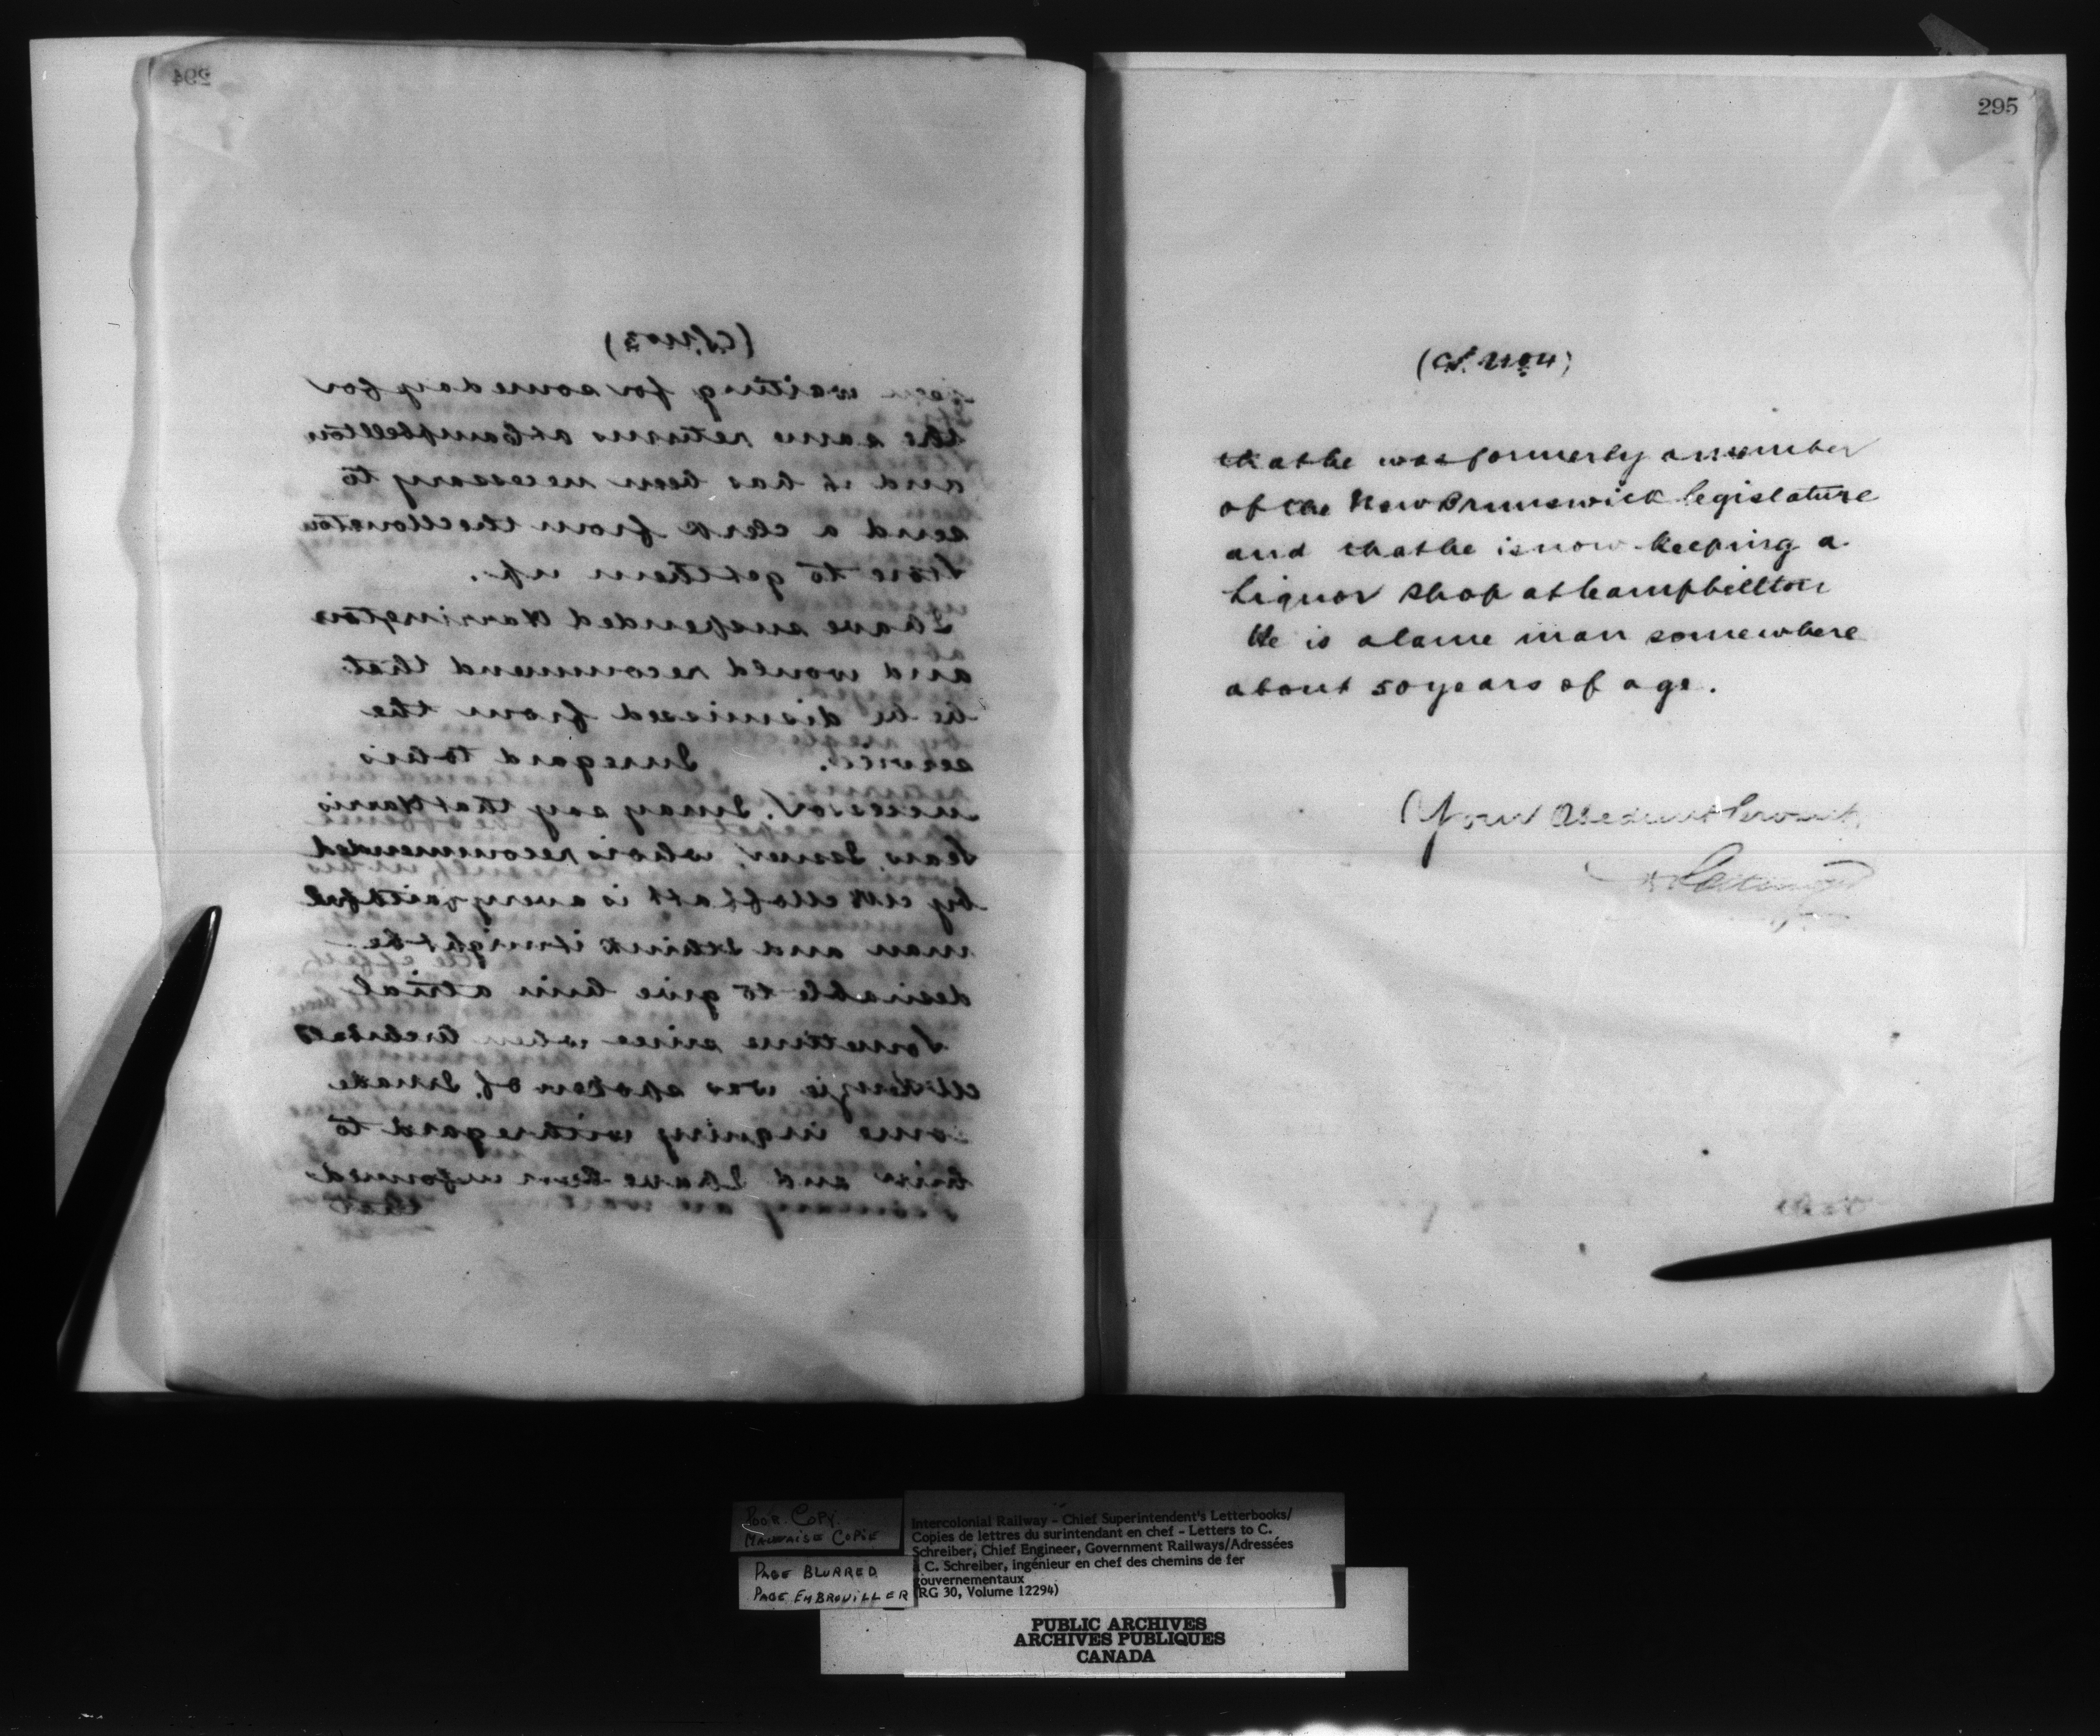 294
(C.S. No 3)
been waiting for some day for
the same returns at Campbellton
and it has been necessary to
send a clerk from the Moncton
Store to get them up.
I have suspended Harrington
and would recommend that
he be dismissed from the
service. In regard to his
successor, I may say that Harris
Sears, Issuer, who is recommended
by Mr Moffatt is a very faithful
man and I think it might be
desirable to give him a trial
Sometime since when Archibald
McKenzie was spoken of, I made
some inquiry with regard to
him and I have been informed
that
295
(C.S. No 4)
that he was formerly a member
of the New Brunswick legislature
and that he is now keeping a
Liquor Shop at Campbellton
He is a lame man somewhere
about 50 years of age.
Your Obedient Servant,
POOR COPY
MAUVAISE COPIE
PAGE BLURRED
PAGE EMBROUILLER
Intercolonial Railway - Chief Superintendent's Letterbooks/
Copies de lettres du surintendant en chef - Letters to C.
Schreiber, Chief Engineer, Government Railways/Adressées
à C. Schreiber, ingénieur en chef des chemins de fer
gouvernementaux
(RG 30, Volume 12294)
PUBLIC ARCHIVES
ARCHIVES PUBLIQUES
CANADA